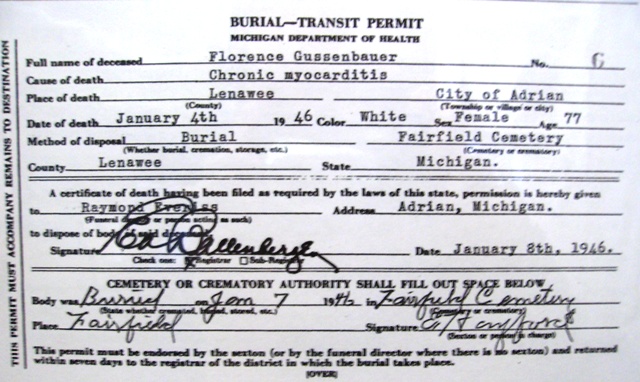 BURIAL—TRANSIT PERMIT
MICHIGAN DEPARTMENT OF HEALTH
Full name of deceased Florence Gussenbauer No. 6
Cause of death Chronic myocarditis
Place of death Lenawee City of Adrian
(County) (Township or village or city)
Date of death January 4th 1946 Color White Sex Female Age 77
Method of disposal Burial Fairfield Cemetery
(Whether burial, cremation, storage, etc.) (Cemetery or crematory)
County Lenawee State Michigan.
A certificate of death having been filed as required by the laws of this state, permission is hereby given
to Raymond Address Adrian, Michigan.
(Funeral director or person acting as such)
to dispose of body of said deceased.
Signature Date January 8th, 1946.
Check one: Registrar Sub-Registrar
CEMETERY OR CREMATORY AUTHORITY SHALL FILL OUT SPACE BELOW
Body was Buried on Jan 7 194 in Fairfield Cemetery
(State whether cremated, buried, stored, etc.) (Cemetery or crematory)
Place Fairfield Signature
(Sexton or person in charge)
This permit must be endorsed by the sexton (or by the funeral director where there is no sexton) and returned
within seven days to the registrar of the district in which the burial takes place.
(OVER)
THIS PERMIT MUST ACCOMPANY REMAINS TO DESTINATION